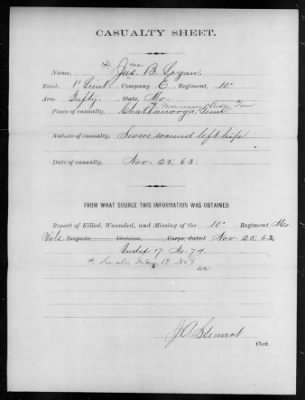 CASUALTY SHEET.
Name, Jas. B. Logan,
Rank, 1" Lieut. Company E, Regiment, 10"
Arm, Infty. State, Mo.
Missionary Ridge, Tenn
Place of casualty, Chattanooga, Tenn
Nature of casualty, Severe wound left hip
Date of casualty, Nov. 25, 63.
FROM WHAT SOURCE THIS INFORMATION WAS OBTAINED.
Report of Killed, Wounded, and Missing of the 10" Regiment, Mo
Vols Brigade, Division, Corps, dated Nov 25, 63.
Index 17 No. 74
J A Stewart
Clerk.